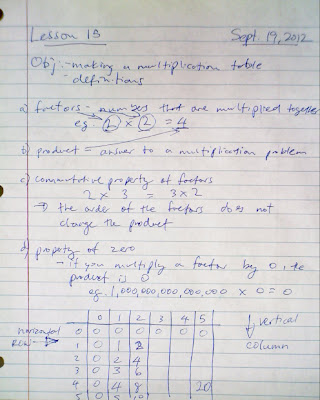 Lesson 13 Sept. 19, 2012
Obj: - making a multiplication table
- definitions
a) factors - numbers that are multiplied together
eg. 2 × 2 = 4
b) product = answer to a multiplication problem
c) commutative property of factors
2 × 3 = 3 × 2
⇒ the order of the factors does not
change the product
d) property of zero
- if you multiply a factor by 0, the
product is 0
eg. 1,000,000,000,000,000 × 0 = 0
0 1 2 3 4 5 vertical
horizontal 0 0 0 0 0 0 0
row → 1 0 1 2 column
2 0 2 4
3 0 3 6
4 0 4 8 20
5 0 5 10